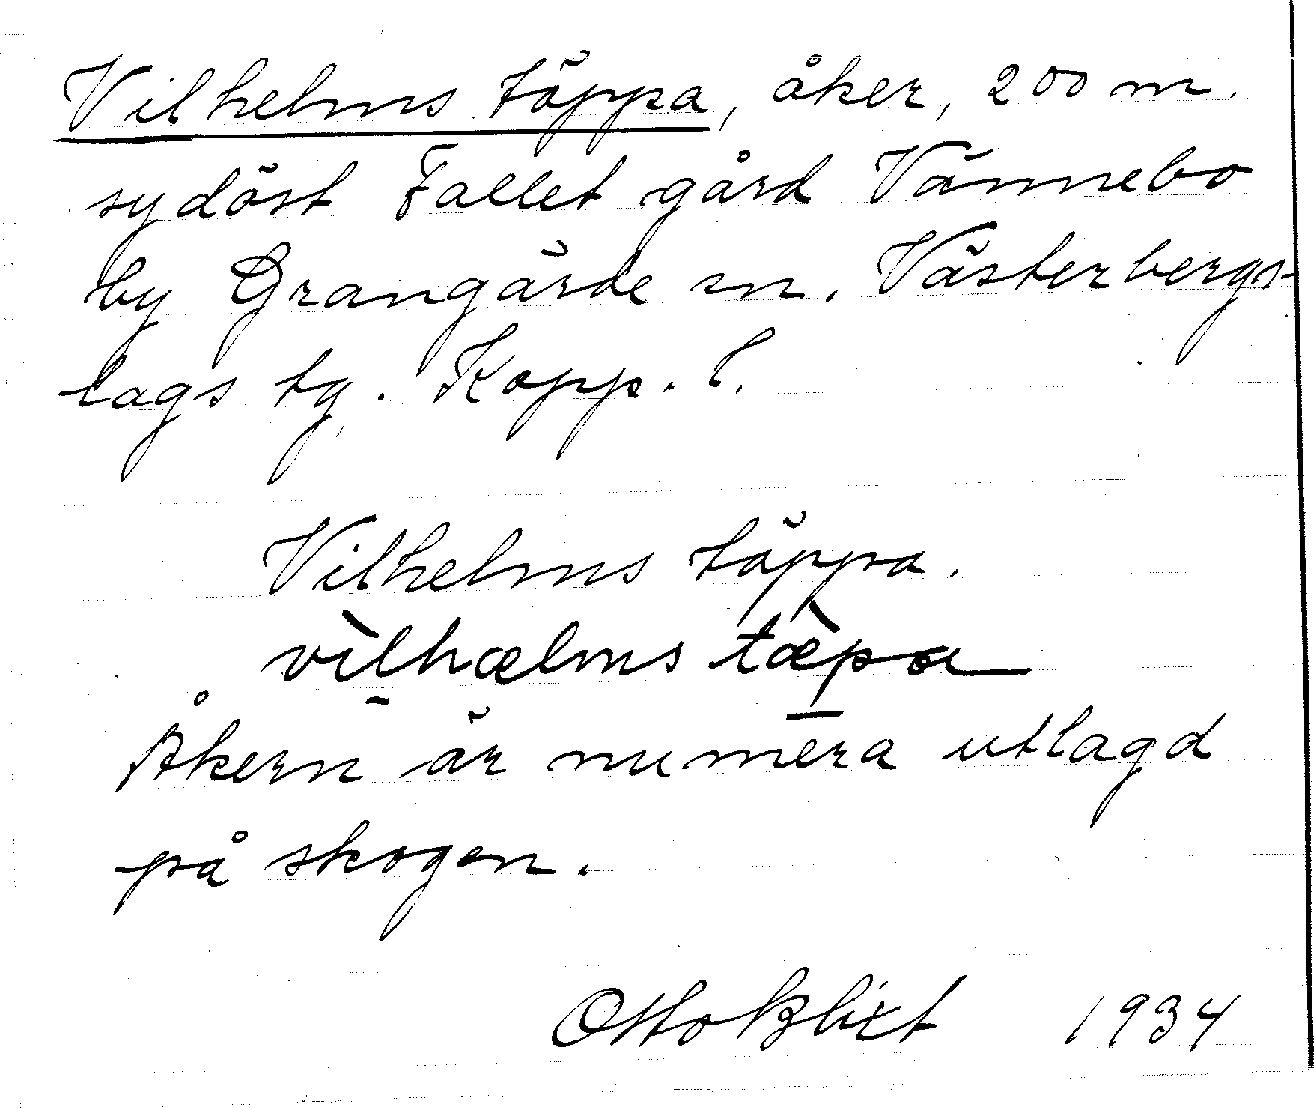 Vilhelms täppa, åker, 200 m.
sydöst Fallet gård Vännebo
by Grangärde sn. Västerbergs-
lags tg. Kopp. l.
Vilhelms täppa.
vìlhælms tæ̀pa
Åkern är numera utlagd
på skogen.
Otto Blixt 1934